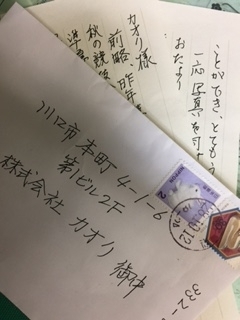 ことができ、とてもう
一応写真を
おたより
カオリ様
前略、昨年
秋の競
準
川口市本町4-1-6
第1ビル2F
株式会社 カオリ 御中
332-